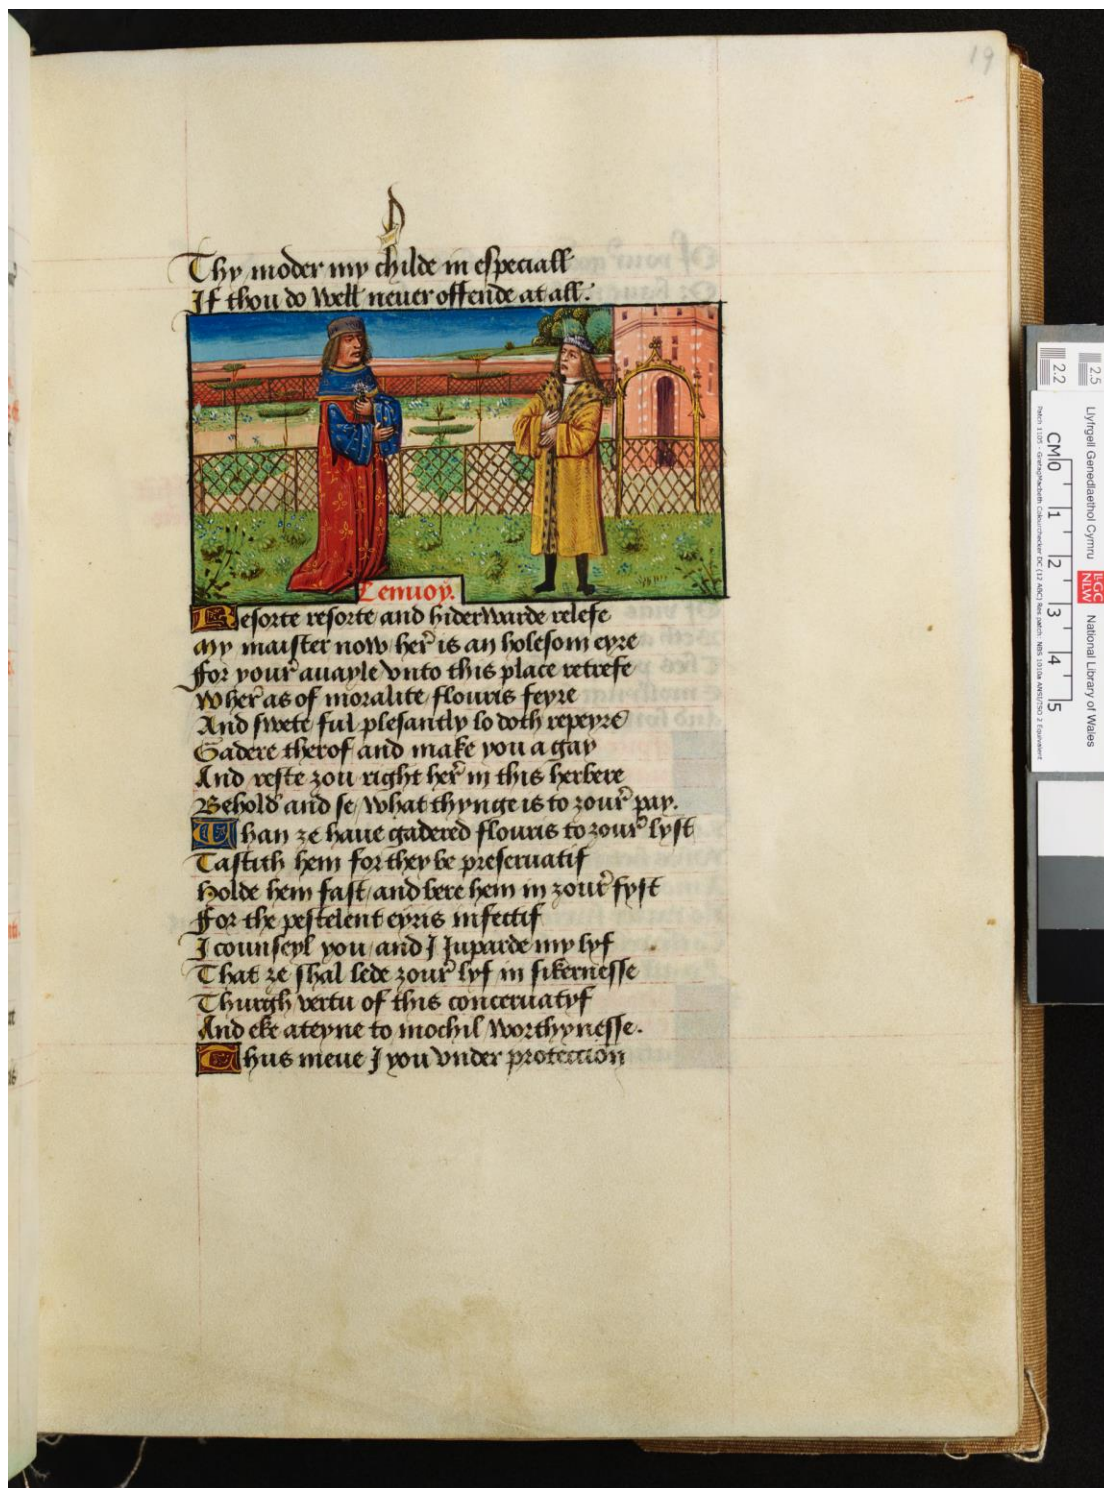 19
Thy moder my childe in especiall
If thou do well neuer offende at all.
Lenuoy.
Resorte resorte and hiderwarde relese
My maister now her is an holesom eyre
For your auayle vnto this place retrese
Wher as of moralite flouris feyre
And swete ful plesantly lo doth repeyre
Gadere therof and make you a gay
And reste zou right her in this herbere
Behold and se what thynge is to zour pay.
Whan ze haue gadered flouris to zour lyst
Tastith hem for they be preseruatif
Holde hem fast and bere hem in zour fyst
For the pestelent eyris infectif
I counseyl you and I Juparde my lyf
That ze shal lede zour lyf in sikernesse
Thurgh vertu of this conceruatyf
And eke ateyne to mochil worthynesse.
Thus meue I you vnder proteccion
Llyfrgell Genedlaethol Cymru
LlGC
NLW
National Library of Wales
2.2
2.5
CM 0 1 2 3 4 5